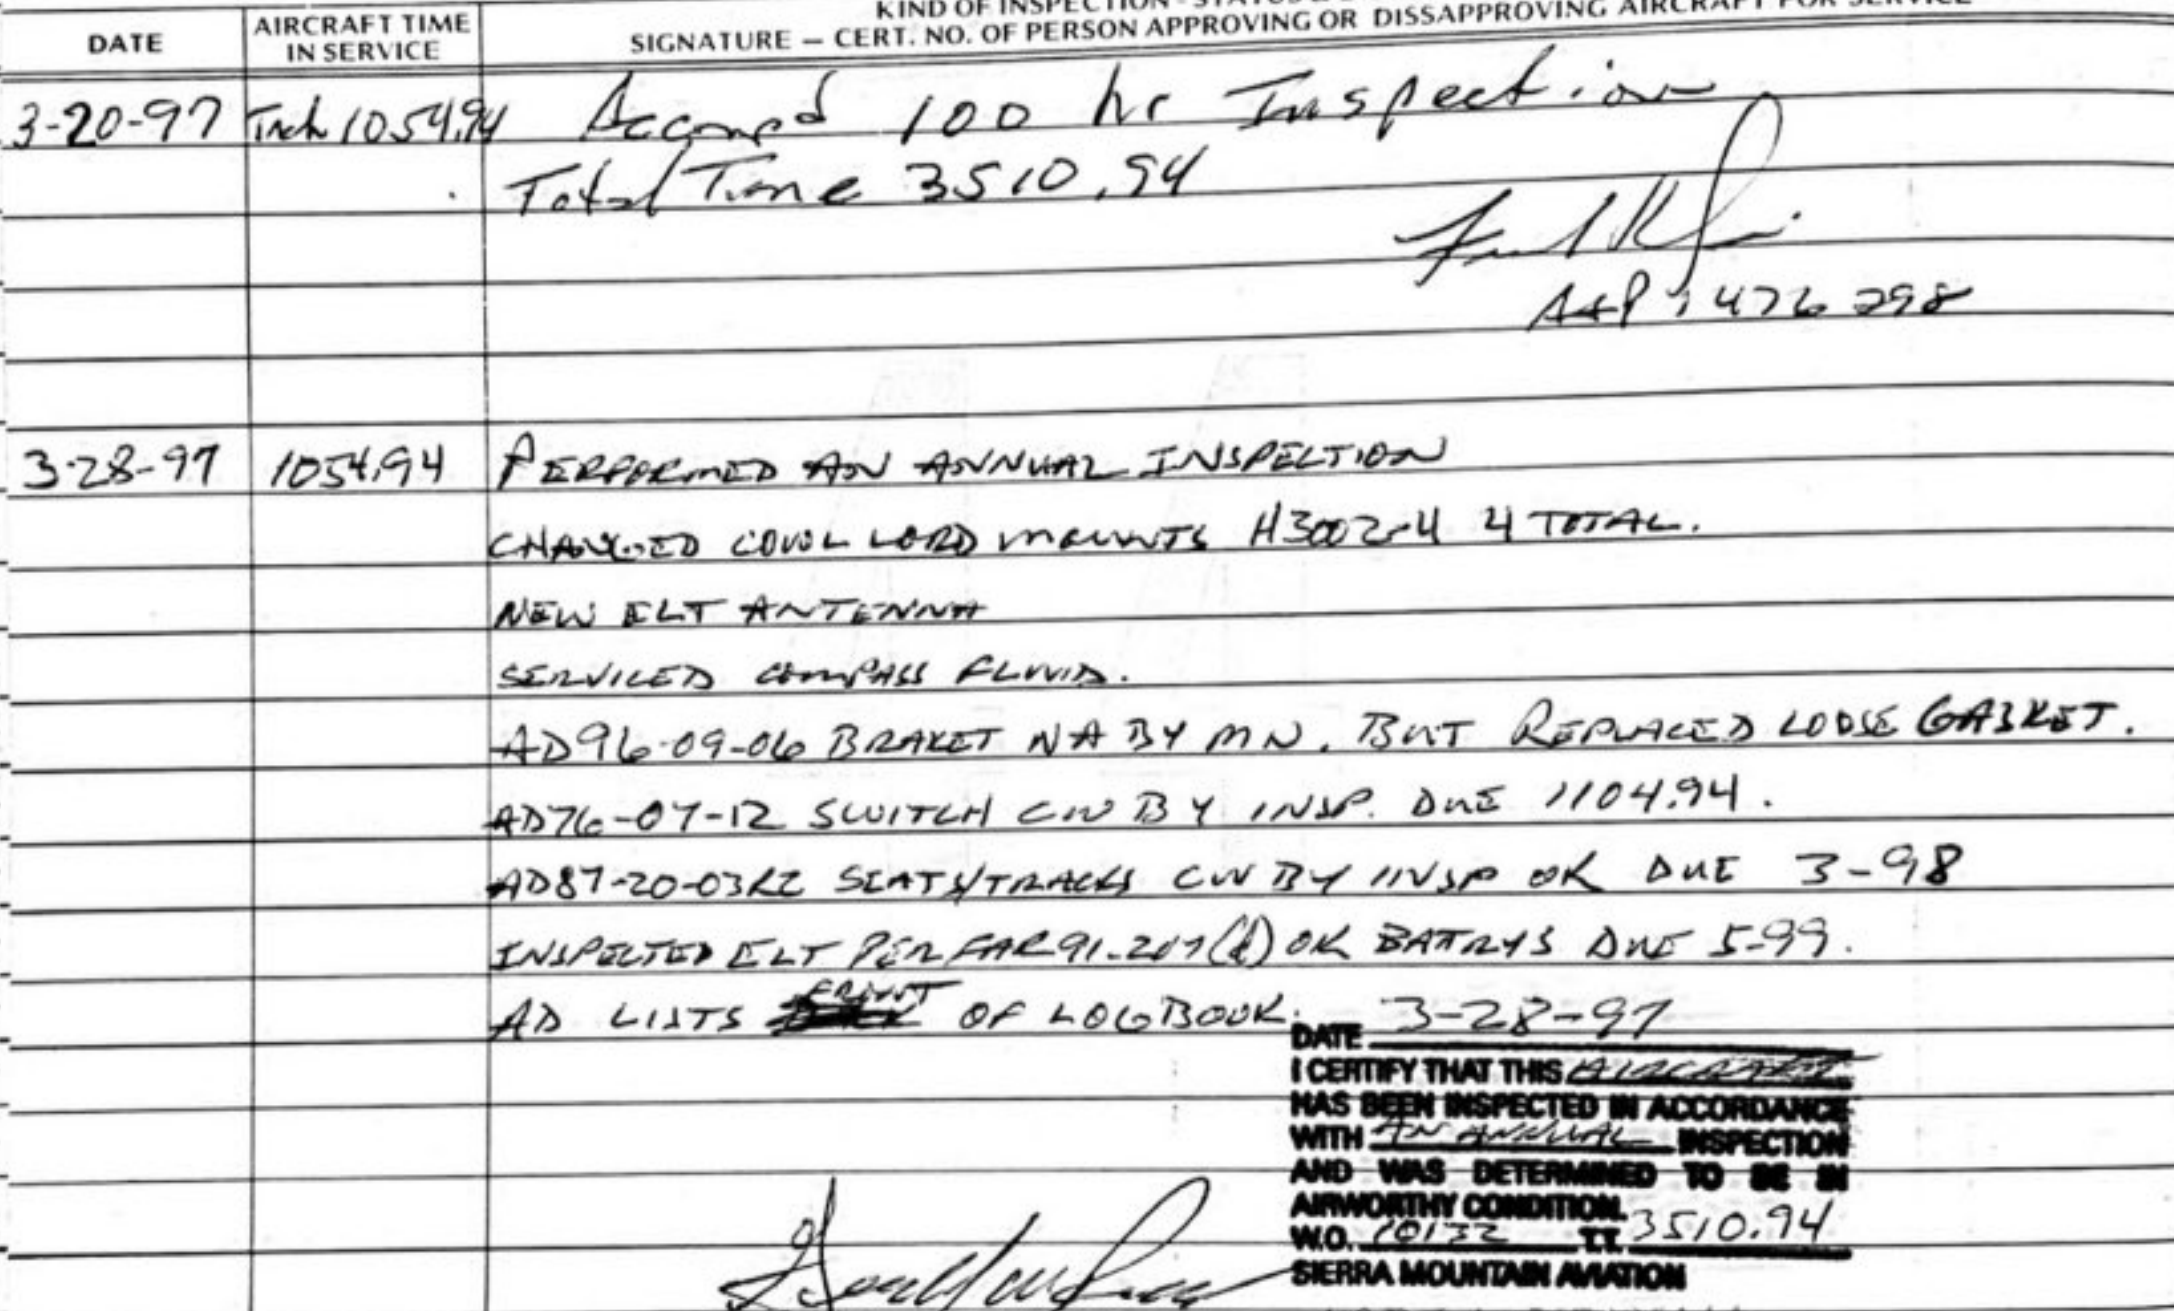 KIND OF INSPECTION
DATE
AIRCRAFT TIME
IN SERVICE
SIGNATURE — CERT. NO. OF PERSON APPROVING OR DISSAPPROVING AIRCRAFT FOR SERVICE
3-20-97 Tach 1054.94 Accomp'd 100 hr Inspection
Total Time 3510.94
A&P 1476298
3-28-97 1054.94 PERFORMED AN ANNUAL INSPECTION
CHANGED COWL LORD MOUNTS H3002-4 4 TOTAL.
NEW ELT ANTENNA
SERVICED COMPASS FLUID.
AD96-09-06 BRAKET NA BY MN. BUT REPLACED LOOSE GASKET.
AD76-07-12 SWITCH CW BY INSP. DUE 1104.94.
AD87-20-03R2 SEATS/TRACKS CW BY INSP OK DUE 3-98
INSPECTED ELT PER FAR 91.207(d) OK BATRYS DUE 5-99.
AD LISTS FRONT OF LOGBOOK.
DATE 3-28-97
I CERTIFY THAT THIS AIRCRAFT
HAS BEEN INSPECTED IN ACCORDANCE
WITH AN ANNUAL INSPECTION
AND WAS DETERMINED TO BE IN
AIRWORTHY CONDITION.
W.O. 10132 T.T. 3510.94
SIERRA MOUNTAIN AVIATION